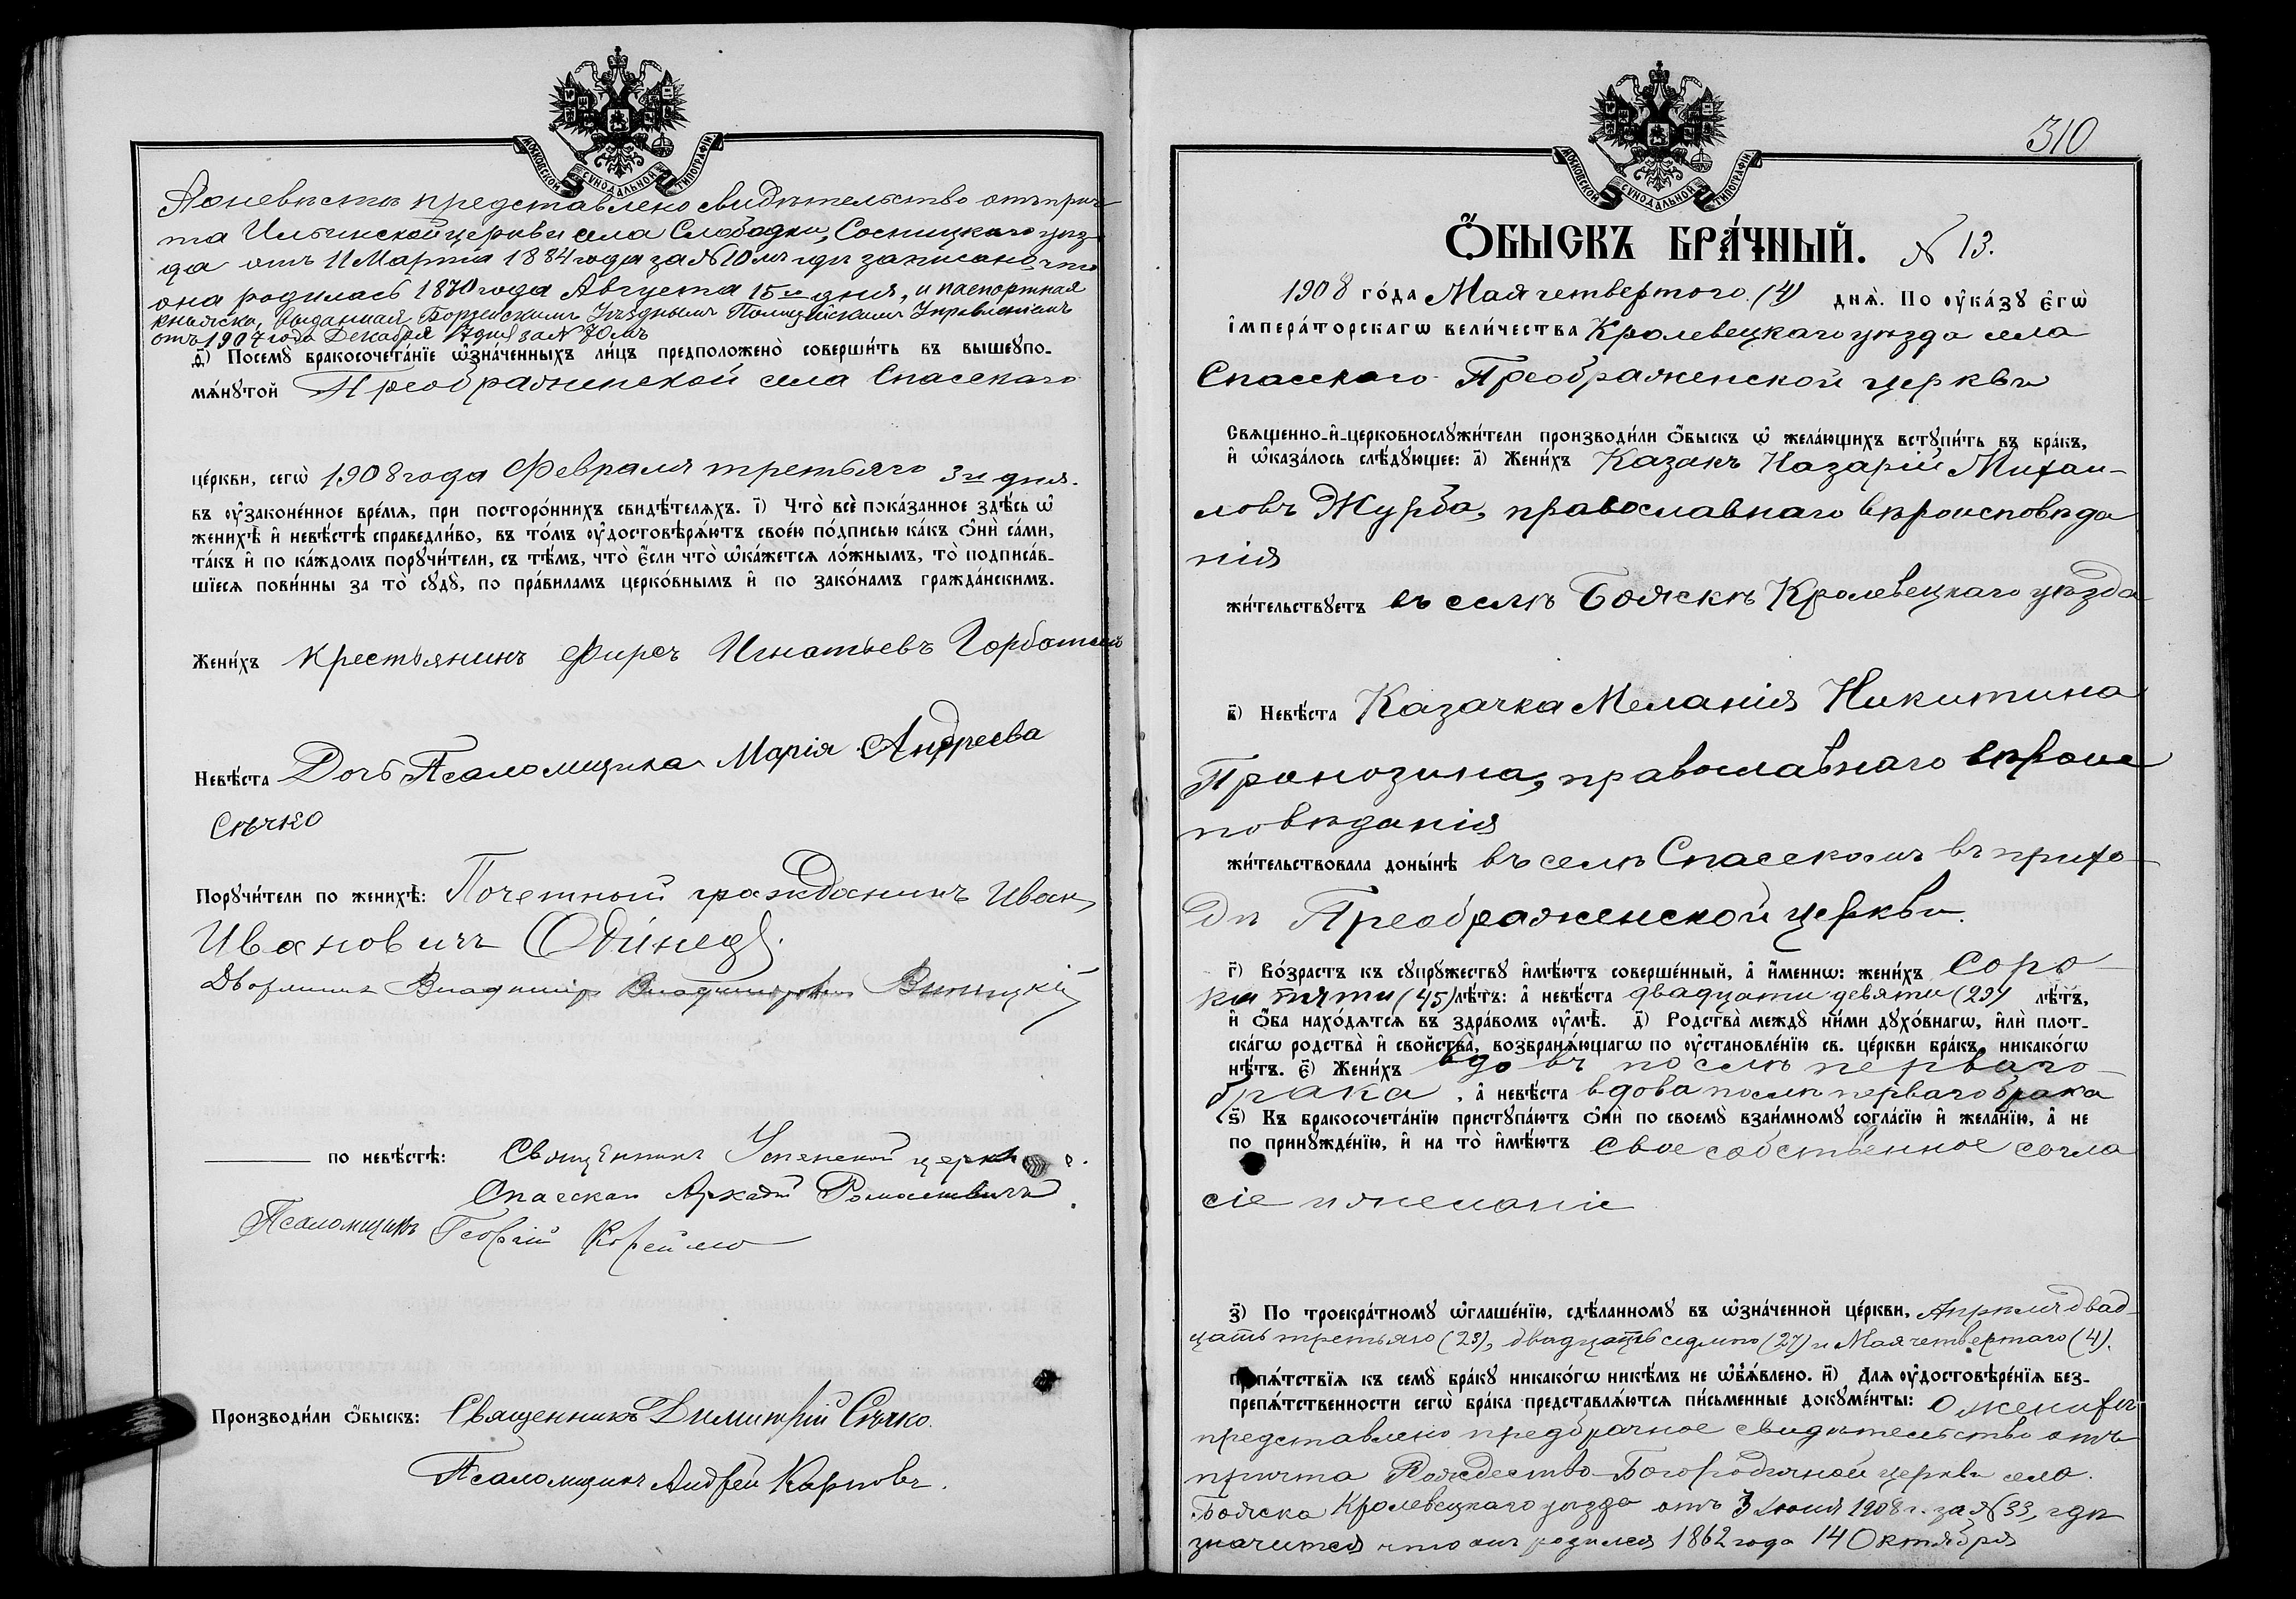 МОСКОВСКОЙ СУНОДАЛЬНОЙ ТИПОГРАФІИ.
А о невѣстѣ представлено свидѣтельство отъ прич
та Ильинской церкви села Слободки, Сосницкаго уѣз
да отъ 11 Марта 1884 года за № 10мъ гдѣ записано что
она родилась 1870 года Августа 15го дня, и паспортная
книжка, выданная Борзенскимъ Уѣзднымъ Полицейскимъ Управленіемъ
отъ 1907 года Декабря 17 дня за № 70мъ
д҃) Посемꙋ̀ бракосочета́нїе ѡ҆зна́ченныхъ ли́цъ предположено̀ соверши́ть въ вышеꙋпо-
мѧ́нꙋтой Преображенской села Спасскаго
це́ркви, сегѡ̀ 1908 года Февраля третьяго 3го дня.
въ ᲂу҆законе́нное вре́мѧ, при посторо́ннихъ свидѣ́телѧхъ. і҃) Что̀ всѐ пока́занное здѣ́сь ѡ҆
женихѣ̀ и҆ невѣ́стѣ справедли́во, въ то́мъ ᲂу҆достовѣрѧ́ютъ свое́ю по́дписью ка́къ ѻ҆нѝ са́ми,
та́къ и҆ по ка́ждомъ порꙋчи́тели, съ тѣ́мъ, что̀ є҆́сли что̀ ѡ҆ка́жетсѧ ло́жнымъ, то̀ подписа́в-
шїесѧ пови́нны за то̀ сꙋдꙋ̀, по пра́виламъ церко́внымъ и҆ по зако́намъ гражда́нскимъ.
Жени́хъ Крестьянинъ Фирсъ Игнатьевъ Горбатый
Невѣ́ста Дочь Псаломщика Марія Андреева
Сѣчко
Порꙋчи́тели по женихѣ̀: Почетный гражданинъ Иванъ
Ивановичъ Одинецъ.
Дворянинъ Владиміръ Владиміровъ Виницкій
по невѣ́стѣ: Священникъ Успенской церкви с.
Спасскаго Аркадій
Псаломщикъ Георгій
Производи́ли ѻ҆́быскъ: Священникъ Димитрій Сѣчко.
Псаломщикъ Андрей Карповъ.
310
МОСКОВСКОЙ СУНОДАЛЬНОЙ ТИПОГРАФІИ.
Ѻ҆́БЫСКЪ БРА́ЧНЫЙ. № 13.
1908 го́да Мая четвертого (4) днѧ̀. По ᲂу҆ка́зꙋ є҆гѡ̀
і҆мпера́торскагѡ вели́чества Кролевецкаго уѣзда села
Спасскаго Преображенской церкви
Свѧщенно-и҆-церковнослꙋжи́тели производи́ли ѻ҆́быскъ ѡ҆ жела́ющихъ встꙋпи́ть въ бра́къ,
и҆ ѡ҆каза́лось слѣ́дꙋющее: а҃) Жени́хъ Казакъ Назарій Михаи-
ловъ Журба, православнаго вѣроисповѣда
нія
жи́тельствꙋетъ въ селѣ Божскѣ Кролевецкаго уѣзда
в҃) Невѣ́ста Казачка Меланія Никитина
Пронозина, православнаго вѣроис
повѣданія
жи́тельствовала доны́нѣ въ селѣ Спасскомъ въ прихо-
дѣ Преображенской церкви.
г҃) Во́зрастъ къ сꙋпрꙋ́жествꙋ и҆мѣ́ютъ соверше́нный, а҆ и҆́меннѡ: жени́хъ соро-
ка пяти (45) лѣ́тъ: а҆ невѣ́ста двадцати девяти (29) лѣ́тъ,
и҆ ѻ҆́ба нахо́дѧтсѧ въ здра́вомъ ᲂу҆мѣ̀. д҃) Родства̀ междꙋ̀ ни́ми дꙋхо́внагѡ, и҆лѝ плот-
ска́гѡ родства̀ и҆ свойства̀, возбранѧ́ющагѡ по ᲂу҆становле́нїю св. це́ркви бра́къ, никако́гѡ
нѣ́тъ. є҃) Жени́хъ вдовъ послѣ перваго
брака, а҆ невѣ́ста вдова послѣ перваго брака
ѕ҃) Къ бракосочета́нїю пристꙋпа́ютъ ѻ҆нѝ по своемꙋ̀ взаи́мномꙋ согла́сїю и҆ жела́нїю, а҆ не
по принꙋжде́нїю, и҆ на то̀ и҆мѣ́ютъ свое собственное согла
сіе и желаніе
з҃) По троекра́тномꙋ ѡ҆глаше́нїю, сдѣ́ланномꙋ въ ѡ҆зна́ченной це́ркви, Апрѣля двад-
цать третьяго (23), двадцать седьмого (27) и Мая четвертаго (4).
препѧ́тствїѧ къ семꙋ̀ бра́кꙋ никако́гѡ никѣ́мъ не ѡ҆б̾ѧ́влено. и҃) Длѧ ᲂу҆достовѣре́нїѧ без-
препѧ́тственности сегѡ̀ бра́ка представлѧ́ютсѧ пи́сьменные докꙋме́нты: О женихѣ
представлено предбрачное свидѣтельство отъ
причта Рождество-Богородичной церкви села
Божска Кролевецкаго уѣзда отъ 3 Іюня 1908 г. за № 33, гдѣ
значится что онъ родился 1862 года 14 Октября